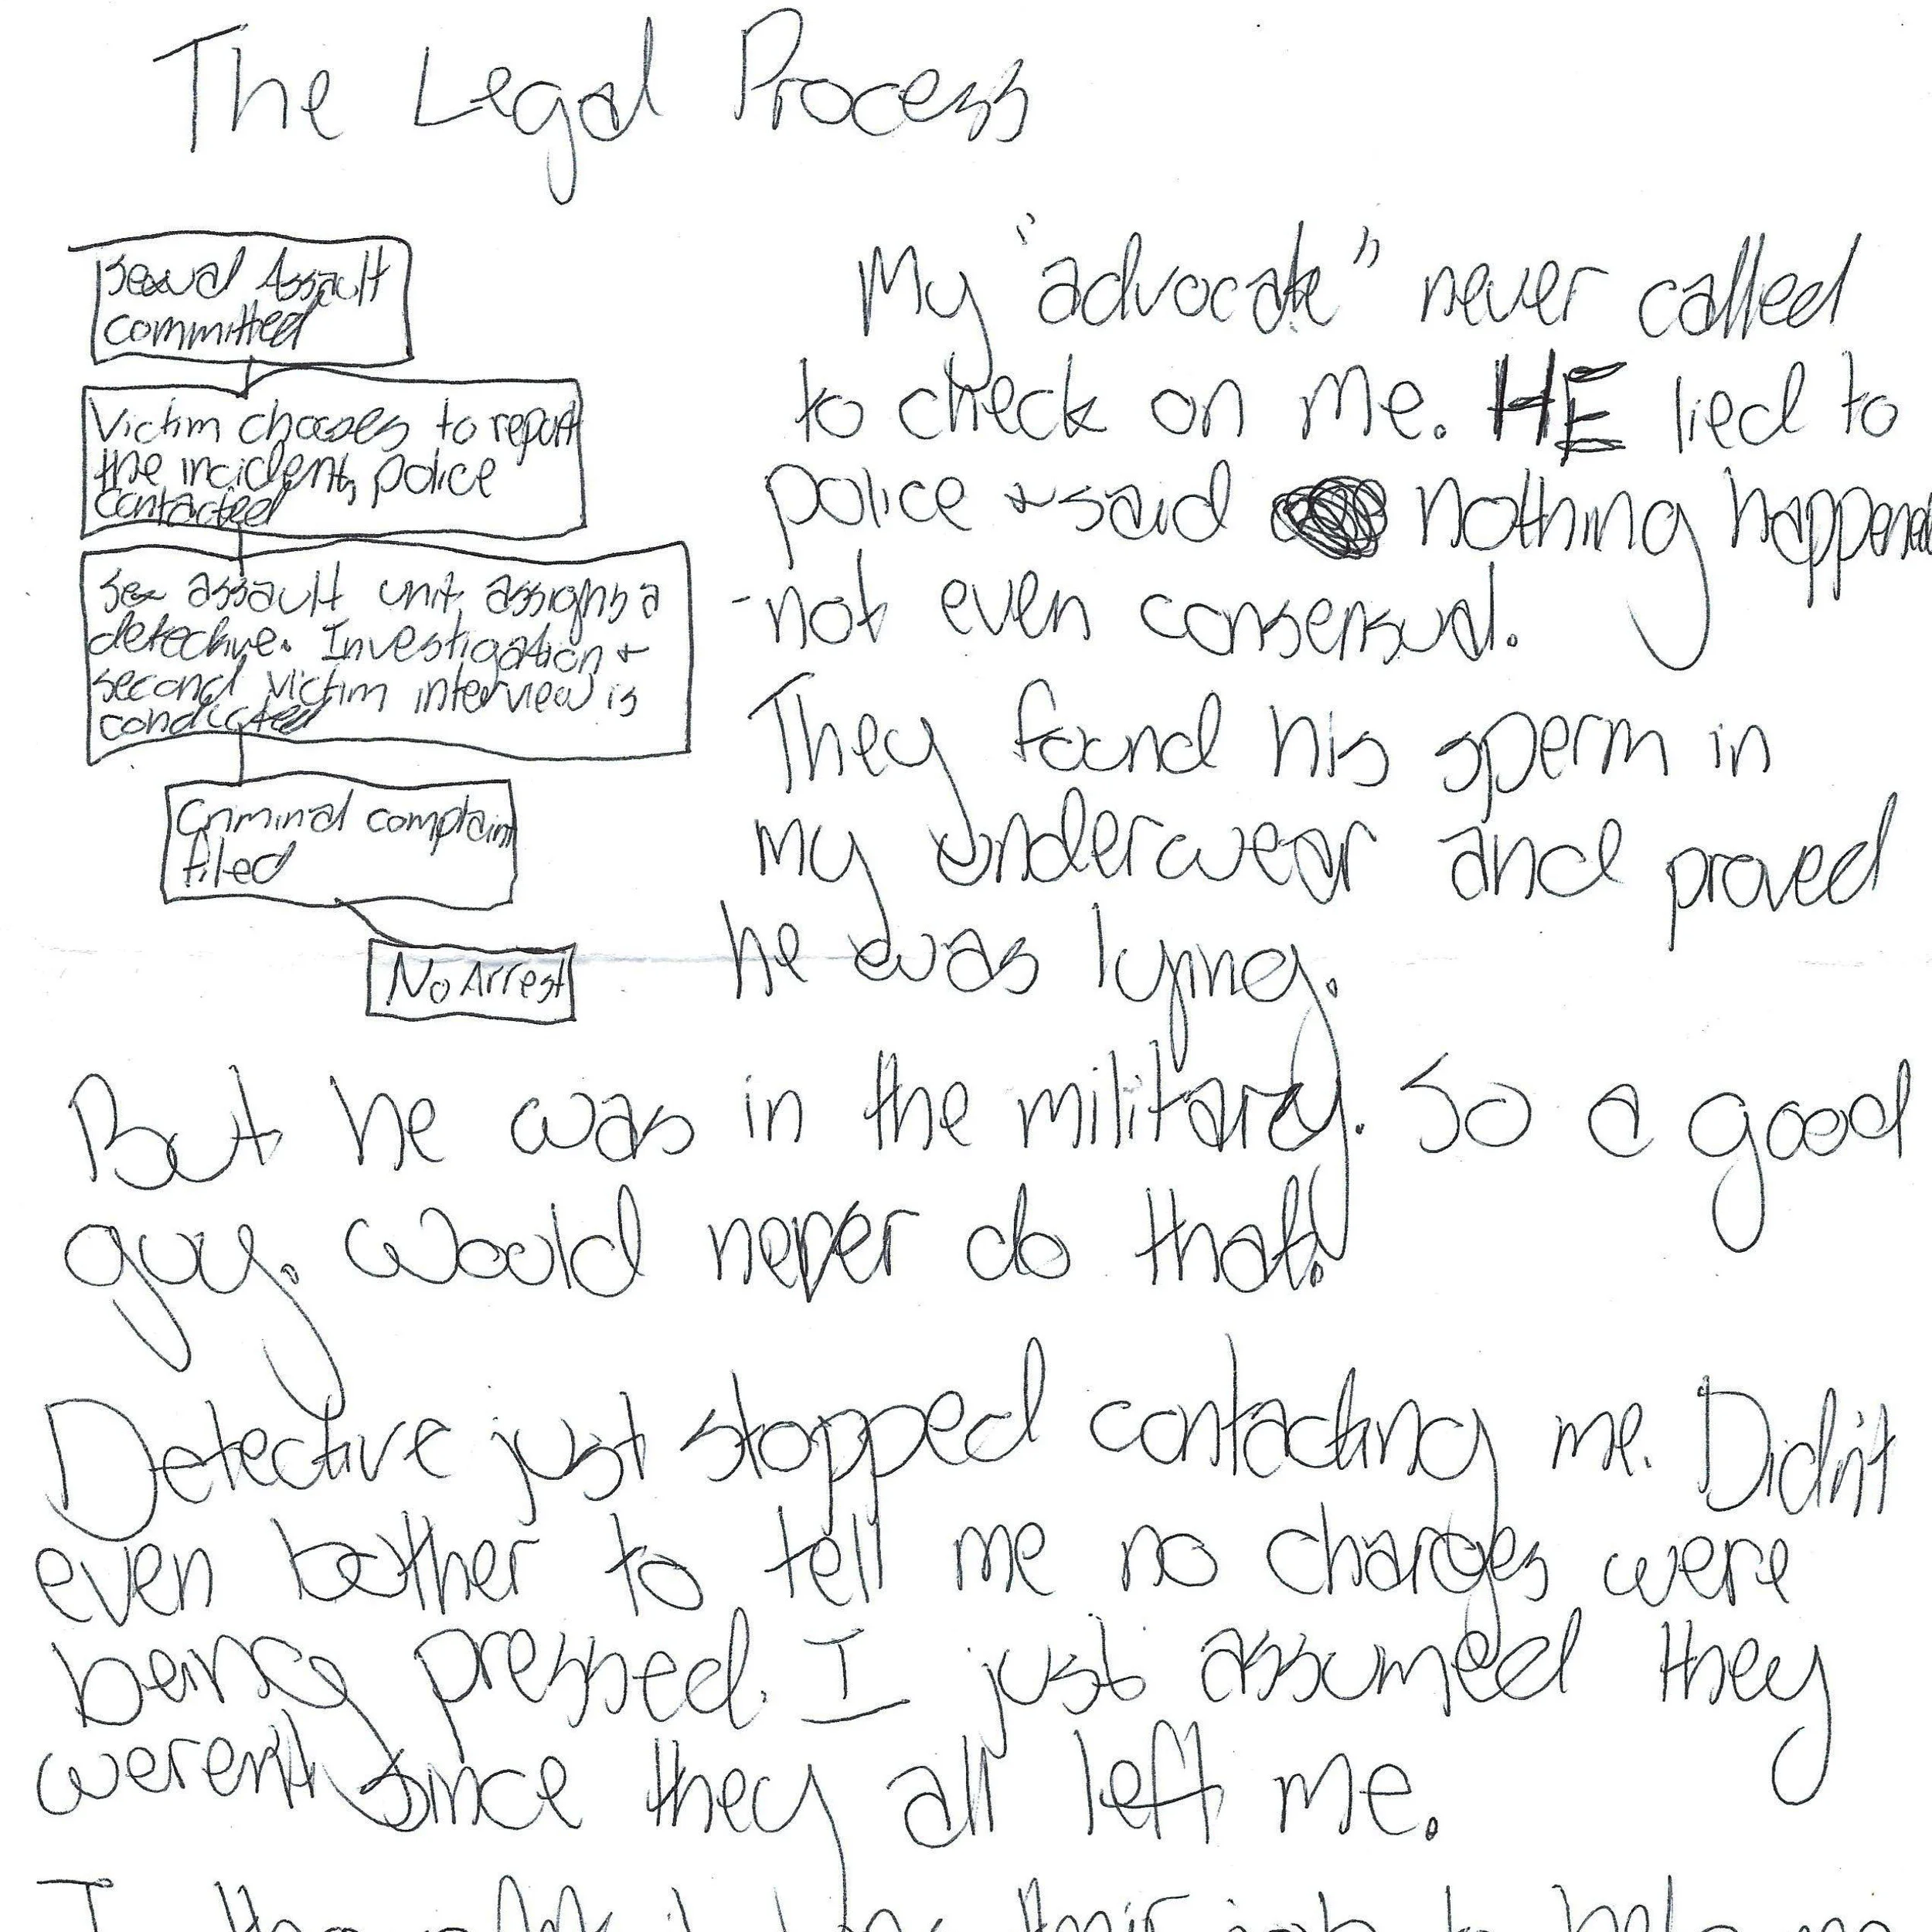 The Legal Process
Sexual Assault
committed
Victim chooses to report
the incident, police
contacted
Sex assault unit assigns a
detective. Investigation +
second victim interview is
conducted
Criminal complaint
filed
No Arrest
My "advocate" never called
to check on me. HE lied to
police + said nothing happened
-not even consensual.
They found his sperm in
my underwear and proved
he was lying.
But he was in the military. So a good
guy. Would never do that!
Detective just stopped contacting me. Didn't
even bother to tell me no charges were
being pressed. I just assumed they
weren't since they all left me.
I thought it was their job to help me